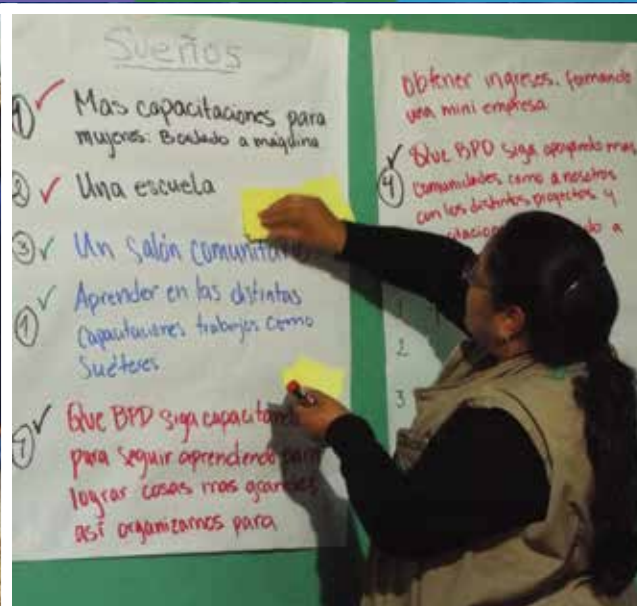 Sueños
1 Mas capacitaciones para
mujeres: Bordado a máquina
2 Una escuela
3 Un Salón comunitario
1 Aprender en las distintas
Capacitaciones trabajos como
Suéteres
1 Que BPD siga capacitando
para seguir aprendendo para
lograr cosas mas grandes
así organizarnos para
obtener ingresos. formando
una mini empresa
4 Que BPD siga apoyando mas
comunidades como a nosotros
con los distintos proyectos y
a
1
2
3